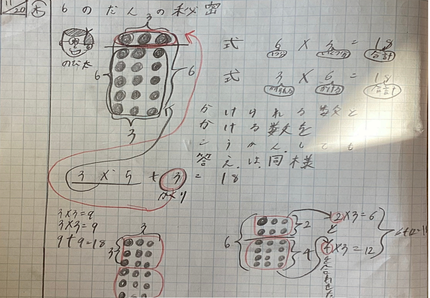 11/20
6のだんの秘密
3
のび太
6
6
3
式 6 × 3 = 18
式 3 × 6 = 18
かけられる数と
かける数を
こうかんしても
答えは同様
3 × 5 + 3 = 18
3×3=9
3×3=9
9+9=18
3
3
6
2
4
2×3=6
4×3=12